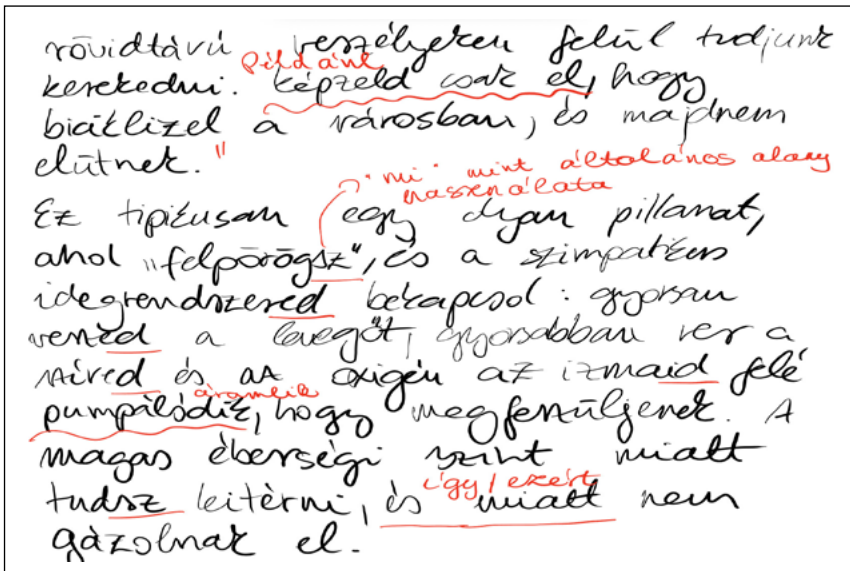 rövidtávú veszélyeken felül tudjunk
Például
kerekedni. képzeld csak el, hogy
biciklizel a városban, és majdnem
elütnek."
"mi" mint általános alany
használata
Ez tipikusan egy olyan pillanat,
ahol "felpörögsz", és a szimpatikus
idegrendszered bekapcsol: gyorsan
veszed a levegőt, gyorsabban ver a
szíved és az oxigén az izmaid felé
áramlik
pumpálódik, hogy megfeszüljenek. A
magas éberségi szint miatt
így / ezért
tudsz kitérni, és miatt nem
gázolnak el.